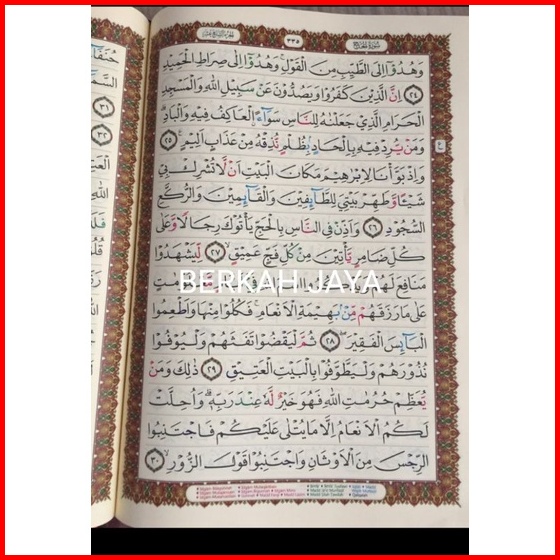 سورة الحج
٣٣٥
الجزء السابع عشر
وَهُدُوْٓا اِلَى الطَّيِّبِ مِنَ الْقَوْلِۚ وَهُدُوْٓا اِلٰى صِرَاطِ الْحَمِيْدِ
٢٤ اِنَّ الَّذِيْنَ كَفَرُوْا وَيَصُدُّوْنَ عَنْ سَبِيْلِ اللّٰهِ وَالْمَسْجِدِ
الْحَرَامِ الَّذِيْ جَعَلْنٰهُ لِلنَّاسِ سَوَاۤءً ۨالْعَاكِفُ فِيْهِ وَالْبَادِۗ
وَمَنْ يُّرِدْ فِيْهِ بِاِلْحَادٍۢ بِظُلْمٍ نُّذِقْهُ مِنْ عَذَابٍ اَلِيْمٍ ٢٥
وَاِذْ بَوَّأْنَا لِاِبْرٰهِيْمَ مَكَانَ الْبَيْتِ اَنْ لَّا تُشْرِكْ بِيْ
شَيْـًٔا وَّطَهِّرْ بَيْتِيَ لِلطَّاۤىِٕفِيْنَ وَالْقَاۤىِٕمِيْنَ وَالرُّكَّعِ
السُّجُوْدِ ٢٦ وَاَذِّنْ فِى النَّاسِ بِالْحَجِّ يَأْتُوْكَ رِجَالًا وَّعَلٰى
كُلِّ ضَامِرٍ يَّأْتِيْنَ مِنْ كُلِّ فَجٍّ عَمِيْقٍ ٢٧ لِّيَشْهَدُوْا
مَنَافِعَ لَهُمْ
BERKAH JAYA
عَلٰى مَا رَزَقَهُمْ مِّنْۢ بَهِيْمَةِ الْاَنْعَامِۚ فَكُلُوْا مِنْهَا وَاَطْعِمُوا
الْبَاۤىِٕسَ الْفَقِيْرَ ٢٨ ثُمَّ لْيَقْضُوْا تَفَثَهُمْ وَلْيُوْفُوْا
نُذُوْرَهُمْ وَلْيَطَّوَّفُوْا بِالْبَيْتِ الْعَتِيْقِ ٢٩ ذٰلِكَ وَمَنْ
يُّعَظِّمْ حُرُمٰتِ اللّٰهِ فَهُوَ خَيْرٌ لَّهٗ عِنْدَ رَبِّهٖۗ وَاُحِلَّتْ
لَكُمُ الْاَنْعَامُ اِلَّا مَا يُتْلٰى عَلَيْكُمْ فَاجْتَنِبُوا
الرِّجْسَ مِنَ الْاَوْثَانِ وَاجْتَنِبُوْا قَوْلَ الزُّوْرِ ٣٠